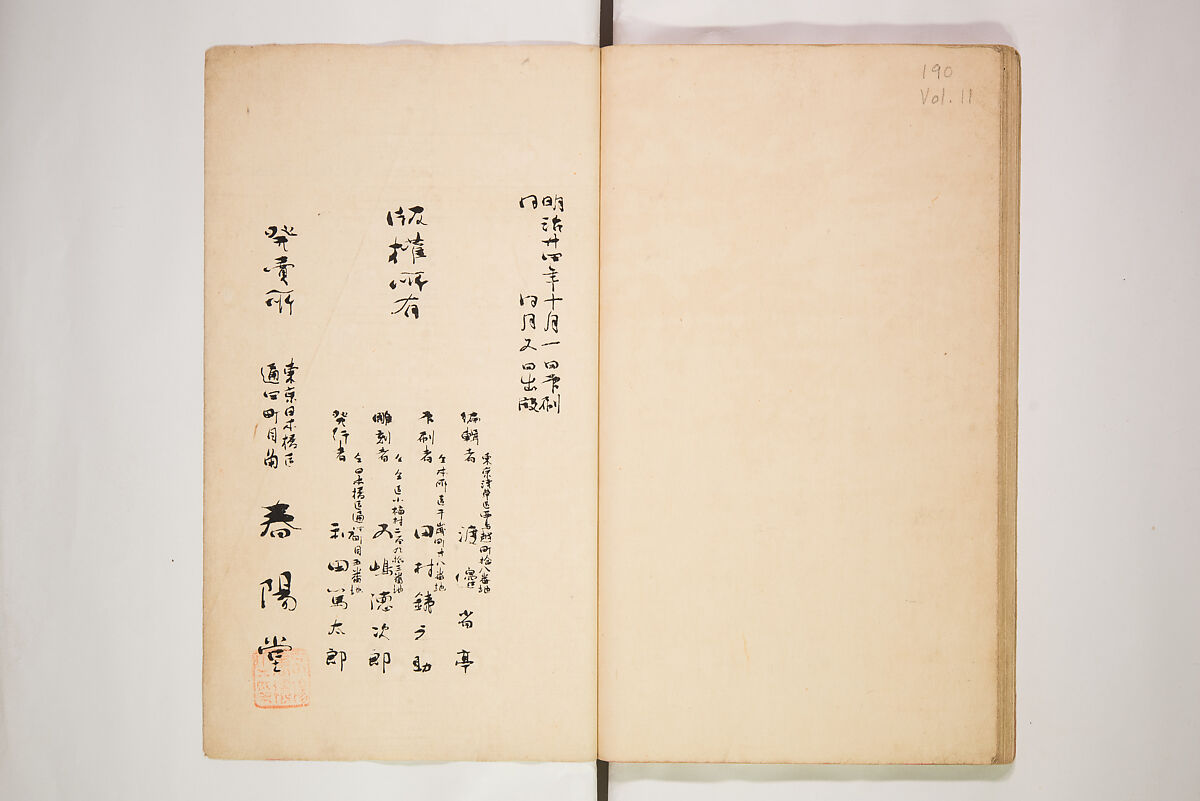 190
Vol. 11
明治廿四年十月一日印刷
同 同月又日出版
版權所有
東京淺草區西鳥越町拾八番地
編輯者 渡邊省亭
仝本所區千歳町十八番地
印刷者 田村鉄之助
仝仝區小梅村二百九拾三番地
雕刻者 又嶋德次郎
仝日本橋區通四町目五番地
発行者 和田篤太郎
発賣所
東京日本橋區
通四町目角
春陽堂